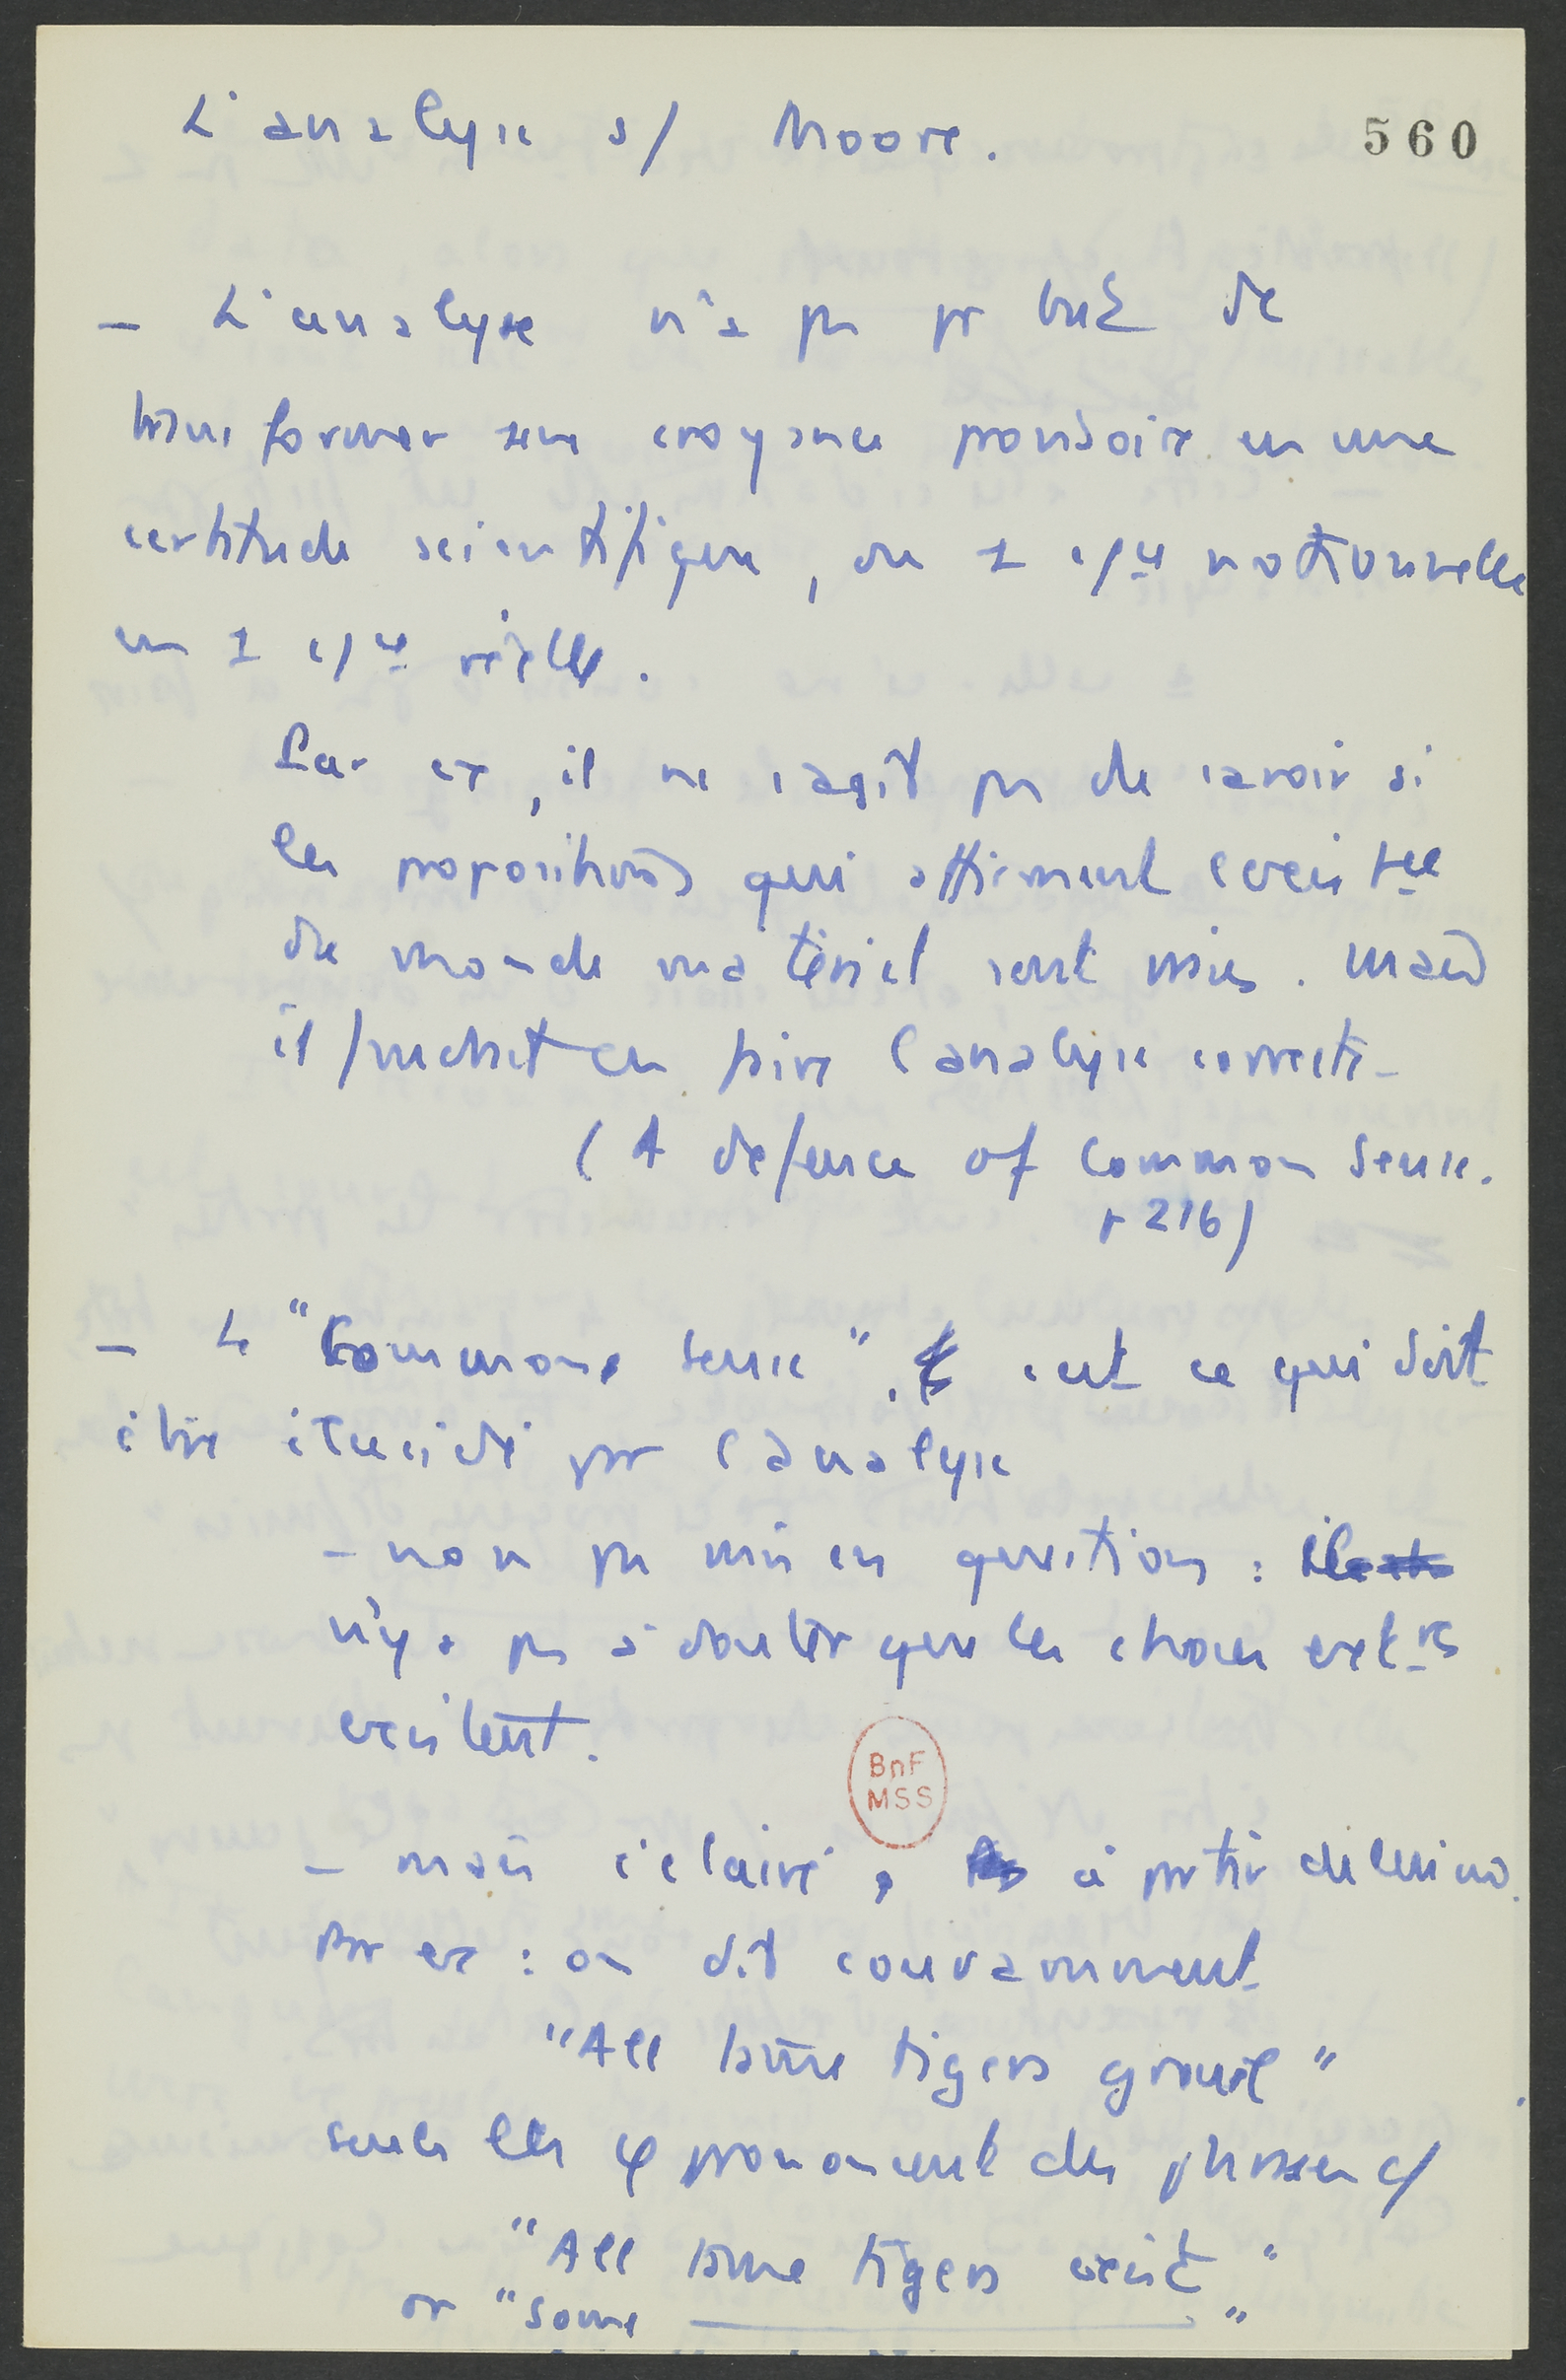 L'analyse s/ Moore.
560
– L'analyse n'a pas pr but de
transformer une croyance provisoire en une
certitude scientifique, ou 1 c/ce notionnelle
en 1 c/ce réelle.
Par ex, il ne s'agit pas de savoir si
les propositions qui affirment l'existce
du monde matériel sont vraies. Mais
il faudrait en faire l'analyse correcte
(A defence of common sense.
p 216)
– Le "Common sense". c'est ce qui doit
être élucidé par l'analyse
– non pas mis en question :
n'y a pas à douter que les choses extres
existent.
BnF
MSS
– mais éclairé, à partir de lui mo.
Par ex : on dit couramment
"All tame tigers growl"
seuls les φ prononcent des phrases c/
"All tame tigers exist"
or "some ________ "